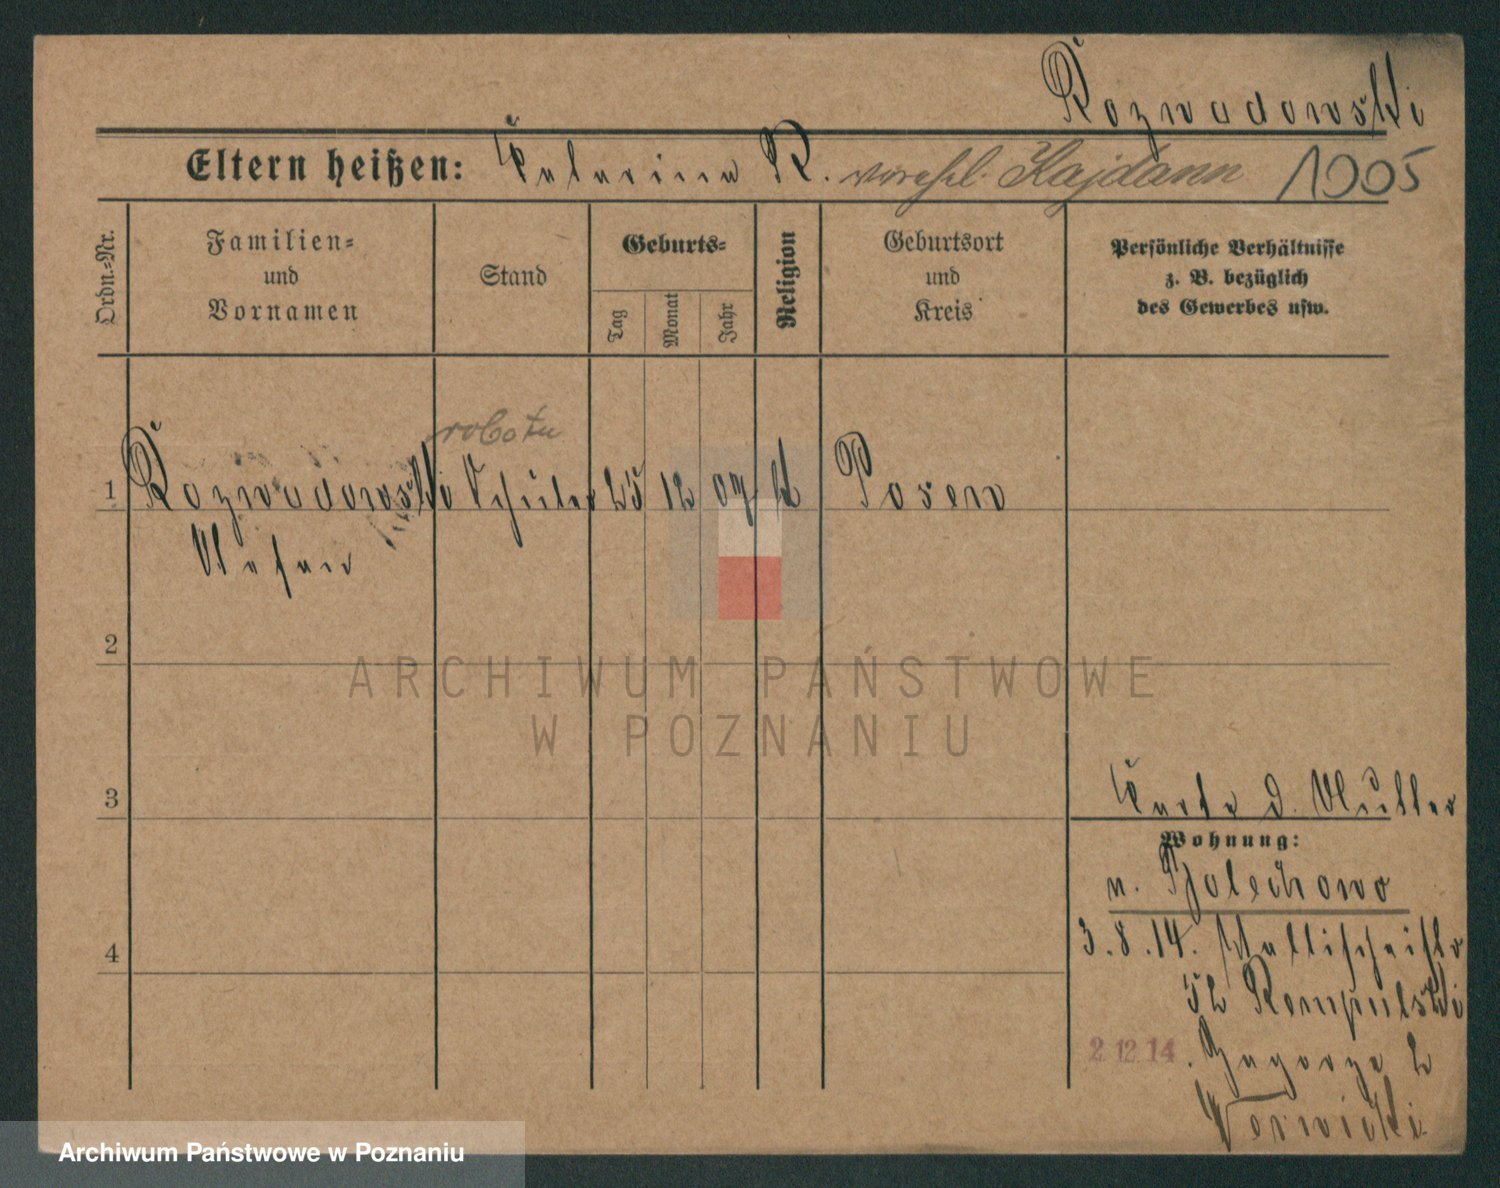 Rozwadowski
Eltern heißen: Katarina R. verehel. Kajdann 1905
Ordn.=Nr.
Familien= und Vornamen
Stand
Geburts=
Tag
Monat
Jahr
Religion
Geburtsort und Kreis
Persönliche Verhältnisse
z. B. bezüglich
des Gewerbes usw.
robotn
1 Rozwadowski Schüler 25 12 07 k Posen
Stefan
2
3
4
Karte d. Mutter
Wohnung:
n. Bolechowo
3.8.14. Wallischeistr
52
2.12.14. Zagorze 2
ARCHIWUM PAŃSTWOWE
W POZNANIU
Archiwum Państwowe w Poznaniu